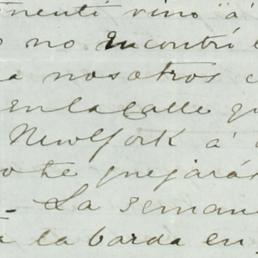 menti vino á
no encontré
a nosotros
en la calle qu
New York á
te quejarás
La seman
a la barda en